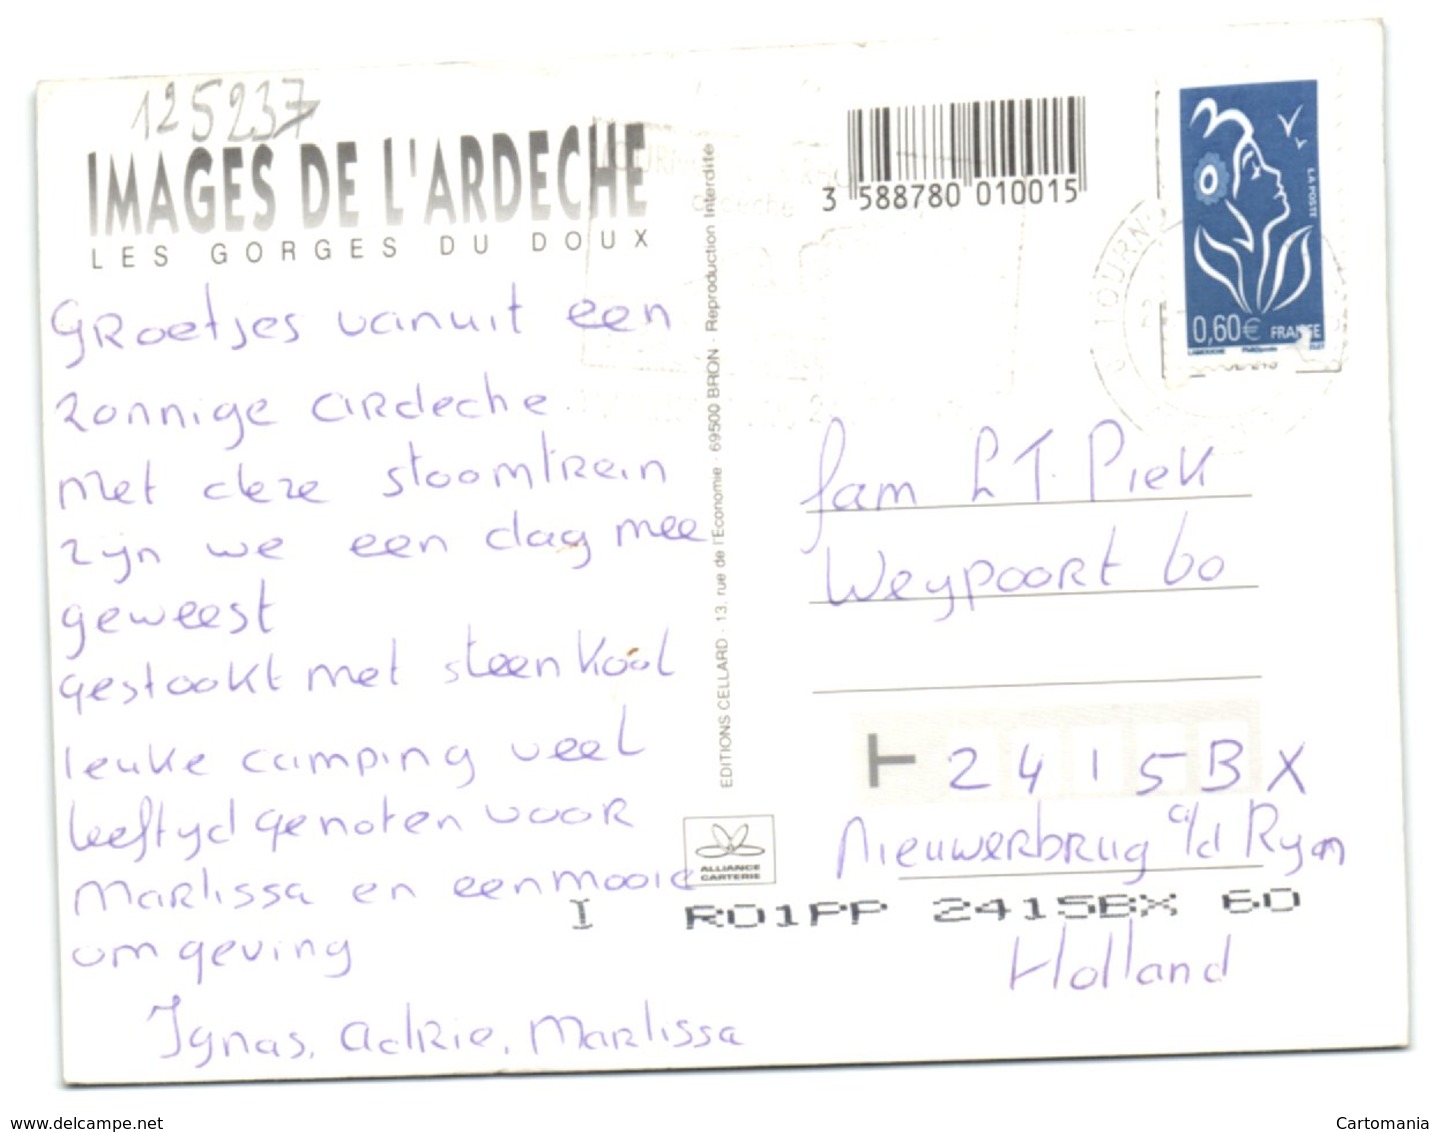 125237
IMAGES DE L'ARDECHE
LES GORGES DU DOUX
Groetjes vanuit een
zonnige ardeche
met deze stoomtrein
zijn we een dag mee
geweest
gestookt met steenkool
leuke camping veel
leeftyd genoten voor
Marlissa en een mooie
omgeving
Ignas, adrie, Marlissa
EDITIONS CELLARD · 13, rue de l'Economie · 69500 BRON · Reproduction Interdite
ALLIANCE
CARTERIE
3 588780 010015
LA POSTE
0,60€ FRANCE
fam L T. Piek
Weypoort 60
2415BX
Nieuwerbrug a/d Ryn
I R01PP 2415BX 60
Holland
www.delcampe.net
Cartomania